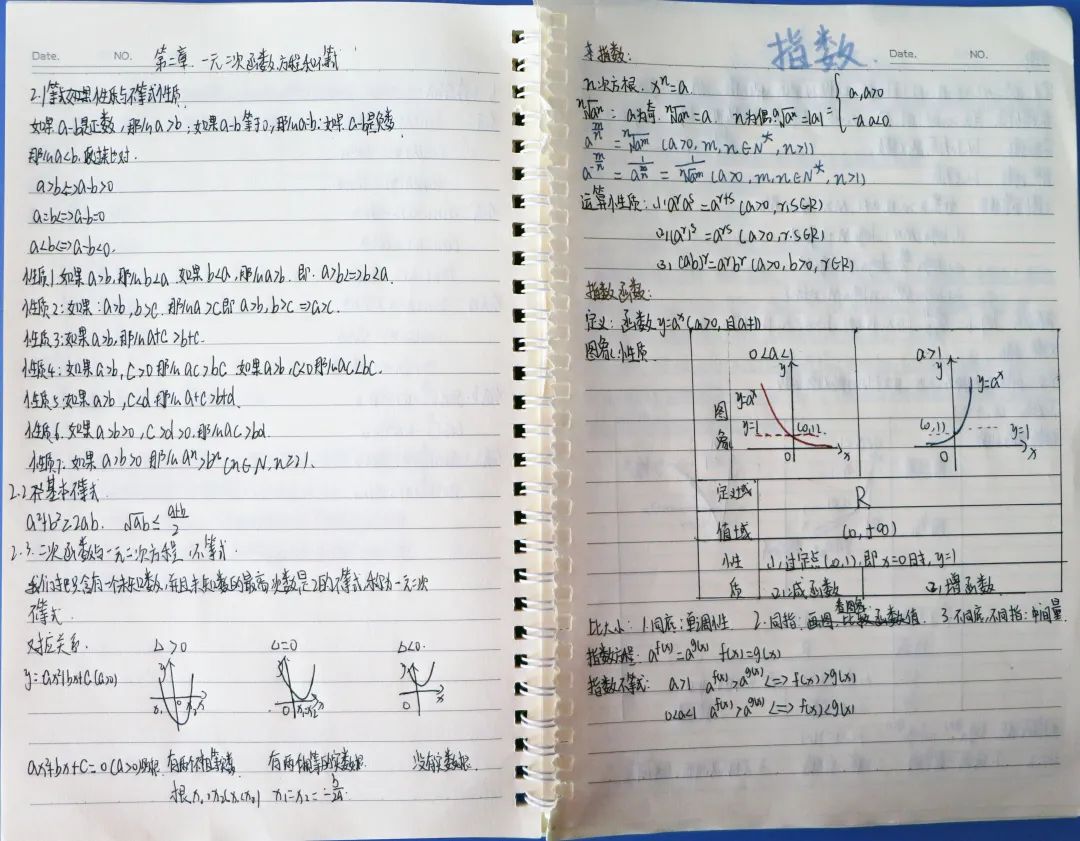 Date. NO.
第二章 一元二次函数,方程和不等式
2.1 等式性质与不等式性质
如果a-b是正数,那么a>b;如果a-b等于0,那么a=b;如果a-b是负数
那么a<b.
a>b<=>a-b>0
a=b<=>a-b=0
a<b<=>a-b<0.
性质1.如果a>b,那么b<a 如果b<a,那么a>b. 即 a>b<=>b<a.
性质2:如果:a>b,b>c.那么a>c即 a>b,b>c=>a>c.
性质3:如果a>b,那么a+c>b+c.
性质4:如果a>b,c>0那么ac>bc 如果a>b,c<0那么ac<bc.
性质5:如果a>b,c<d那么a+c>b+d.
性质6.如果a>b>0,c>d>0.那么ac>bd.
性质7.如果a>b>0那么aⁿ>bⁿ(n∈N,n≥2).
2.2 基本不等式
a²+b²≥2ab. √ab≤(a+b)/2
2.3.二次函数与一元二次方程,不等式.
我们把只含有一个未知数,并且未知数的最高次数是2的不等式,称为一元二次
不等式.
对应关系. △>0 △=0 △<0.
y=ax²+bx+c(a>0)
y x₁ 0 x₂ x
y 0 x₁=x₂ x
y 0 x
ax²+bx+c=0(a>0)的根. 有两个不相等实数 有两个相等的实数根 没有实数根.
根x₁,x₂(x₁<x₂) x₁=x₂=-b/2a.
指数 Date. NO.
指数:
n次方根. xⁿ=a
ⁿ√aⁿ: n为奇.ⁿ√aⁿ=a. n为偶,ⁿ√aⁿ=|a|={a,a≥0
-a a<0
a^(m/n)=ⁿ√a^m (a>0,m,n∈N*,n>1)
a^(-m/n)=1/a^(m/n)=1/ⁿ√a^m (a>0,m,n∈N*,n>1)
运算性质:(1)a^r a^s=a^(r+s) (a>0,r.s∈R)
(2)(a^r)^s=a^(rs) (a>0,r.s∈R)
(3)(ab)^r=a^r b^r (a>0,b>0,r∈R)
指数函数:
定义:函数y=a^x(a>0,且a≠1)
图象,性质.
0<a<1 a>1
图象
y y=a^x y=1 (0,1) 0 x
y y=a^x (0,1) y=1 0 x
定义域 R
值域 (0,+∞)
性 (1)过定点(0,1),即x=0时,y=1
质 (2)减函数 (2)增函数
看图象
比大小: 1.同底:单调性 2.同指:画图 比较函数值 3.不同底,不同指:中间量
指数方程:a^f(x)=a^g(x) f(x)=g(x)
指数不等式: a>1 a^f(x)>a^g(x)<=>f(x)>g(x)
0<a<1 a^f(x)>a^g(x)<=>f(x)<g(x)